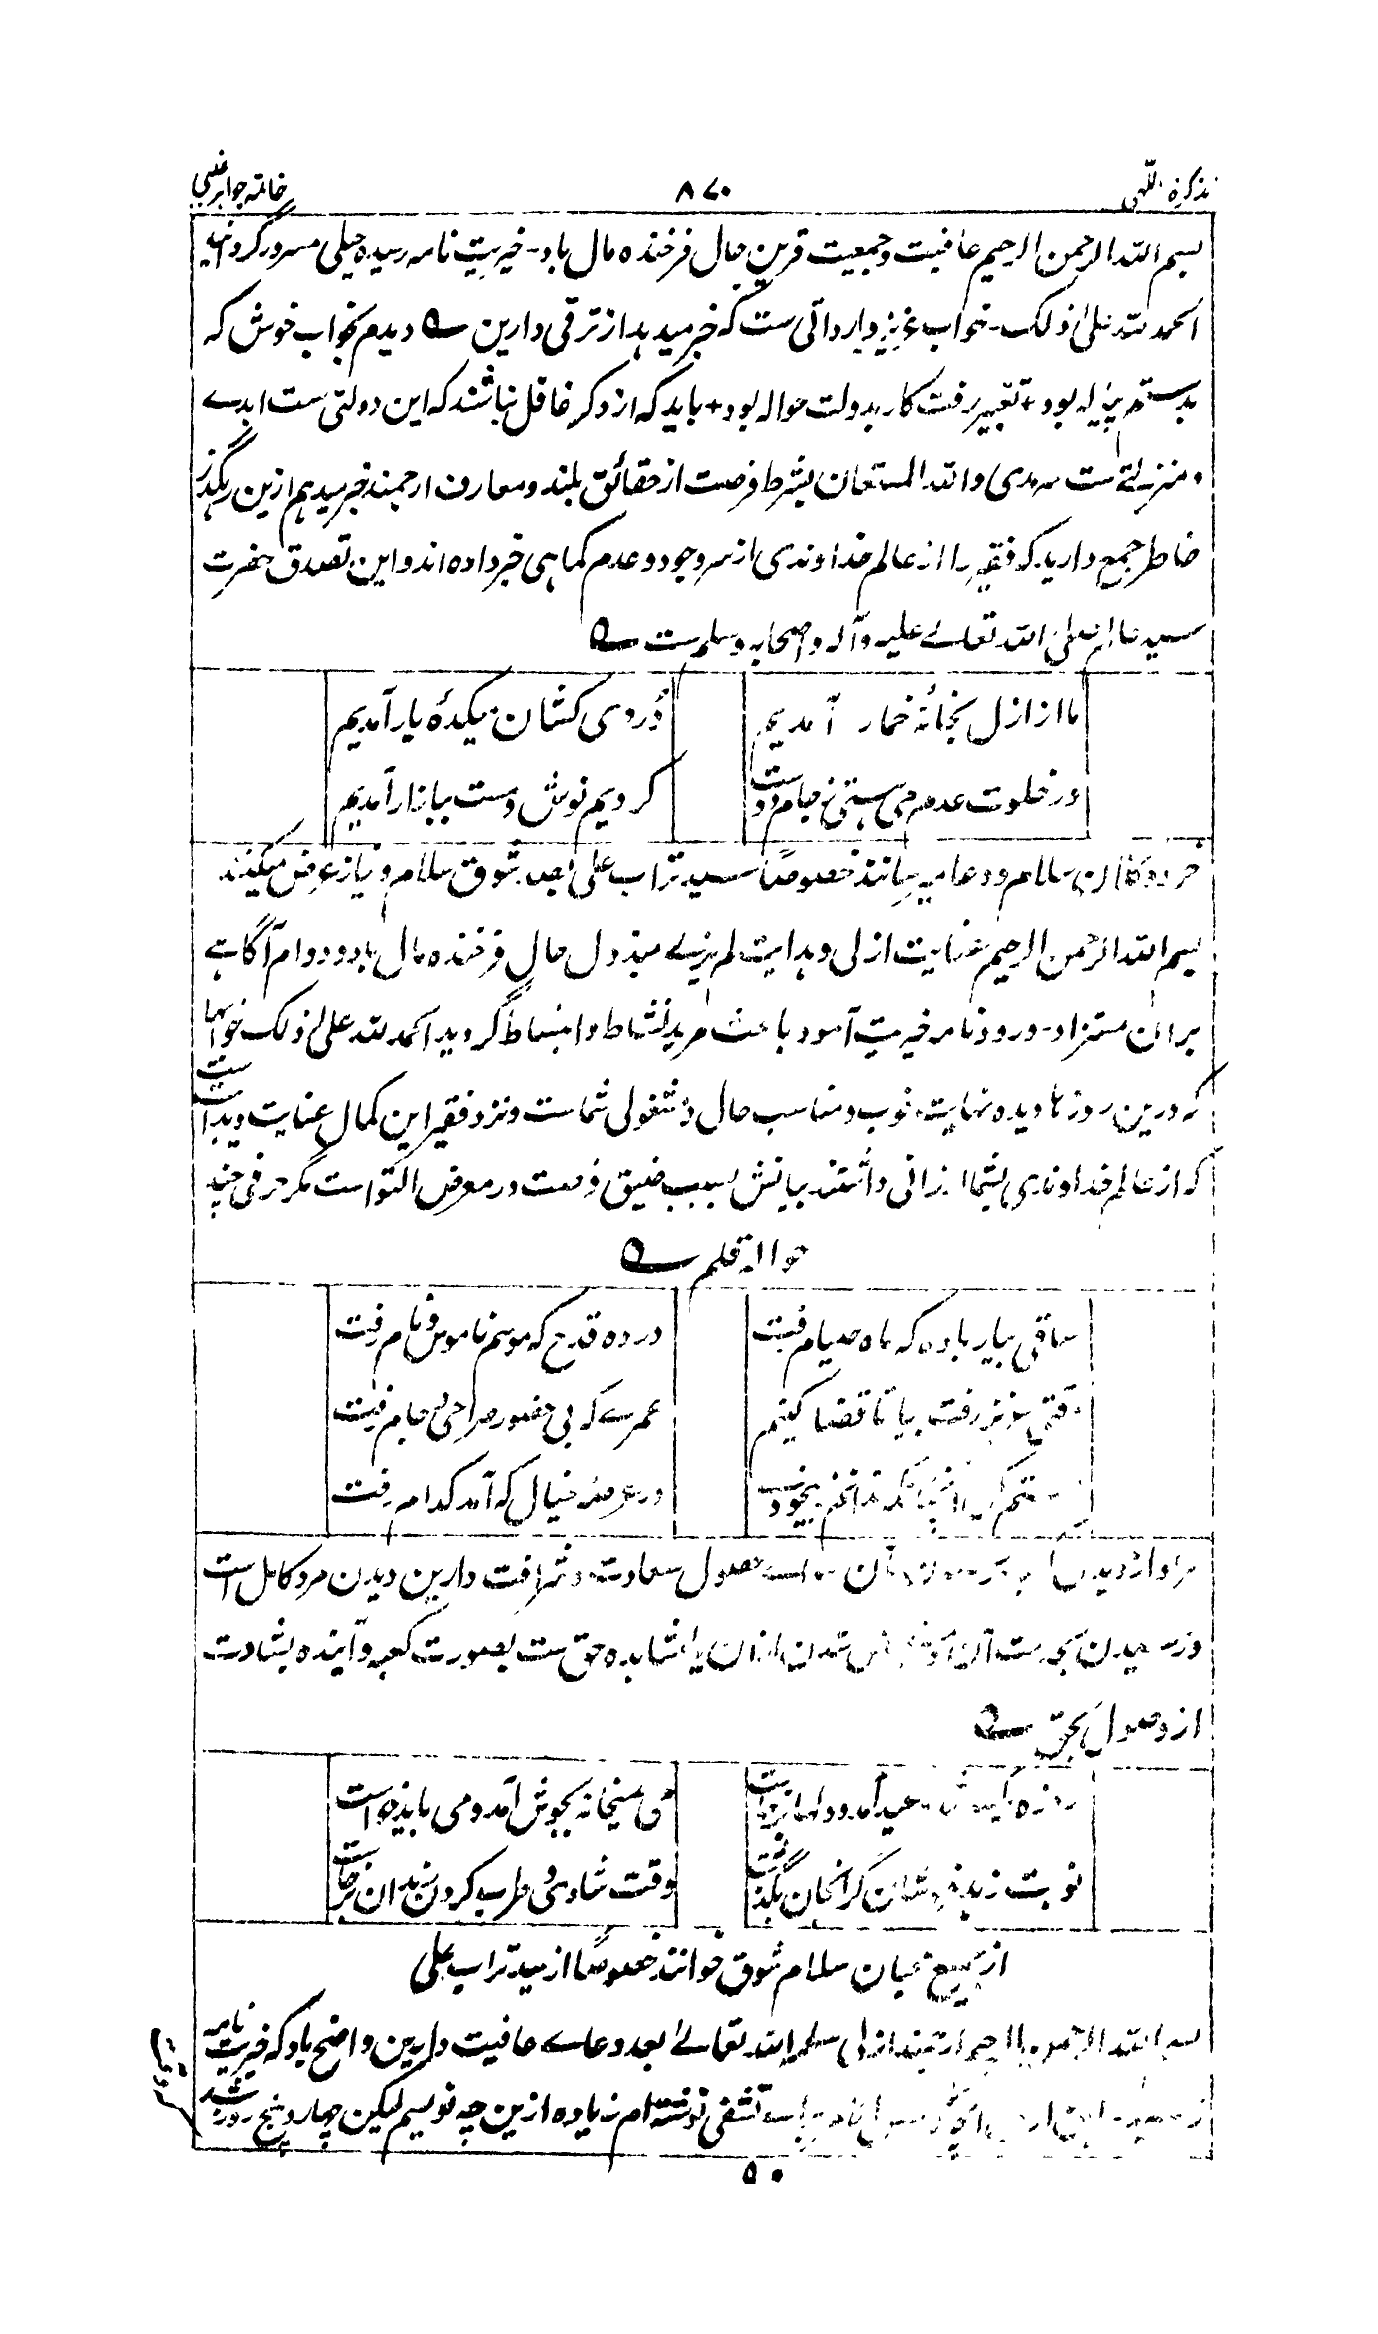 خاتمہ جواہر غیبی
۸۷۰
تذکرۃ اللّٰہی
بسم اللّٰہ الرحمن الرحیم عافیت و جمعیت قرین حال فرخندہ مآل باد۔ خیریت نامہ رسیدہ خیلی مسرور گردانید
الحمد للّٰہ علیٰ ذلک۔ خواب عزیز وارداتی ست کہ خبر میدہد از ترقی دارین دیدم بخواب خوش کہ
بدستم پیالہ بود + تعبیر رفت کار بدولت حوالہ بود + باید کہ از ذکر غافل نباشند کہ این دولتی ست ابدے
و منزلتے ست سرمدی واللّٰہ المستعان بشرط فرصت از حقائق بلند و معارف ارجمند خبر میدہم ازین رہگذر
خاطر جمع دارید کہ فقیر را از عالم خداوندی از سر وجود و عدم کماہی خبر دادہ اند و این تصدق حضرت
سید عالم صلی اللّٰہ تعالےٰ علیہ و آلہ و اصحابہ و سلم ست
ما از ازل بخانۂ خمار آمدیم
دُردی کشان میکدۂ یار آمدیم
در خلوت عدم می ہستی ز جام دوست
کردیم نوش و مست ببازار آمدیم
خرد و کلان سلام و دعا میرسانند خصوصًا سید تراب علی بصد شوق سلام و نیاز عرض میکنند
بسم اللّٰہ الرحمن الرحیم عنایت ازلی و ہدایت لم یزلی مبذول حال فرخندہ مآل باد و دوام آگاہے
بران مستزاد۔ ورود نامہ خیریت آمود باعث مزید نشاط و انبساط گردید الحمد للّٰہ علیٰ ذلک خوابہا
کہ درین روزہا دیدہ نہایت خوب و مناسب حال و شغولی شماست و نزد فقیر این کمال عنایت و ہدایت ست
کہ از عالم خداوندی بشما ارزانی داشتند بیانش بسبب ضیق فرصت در معرض التواست مگر حرفی چند
حوالہ قلم
ساقی بیار بادہ کہ ماہ صیام رفت
در دہ قدح کہ موسم ناموس و نام رفت
وقتی عزیز رفت بیا تا قضا کنیم
عمرے کہ بی حضور صراحی و جام رفت
مستم کن آنچنان کہ ندانم ز بیخودی
در عرصۂ خیال کہ آمد کدام رفت
حصول سعادت و شرافت دارین دیدن مرد کامل است
شدن ازان یا مشاہدہ حق ست بصورت کعبہ و آیندہ بشارت
از وصول بحق
روزہ یکسو شد و عید آمد و دلہا برخاست
می بمیخانہ بجوش آمد و می باید خواست
نوبت زہد فروشان گرانجان بگذشت
وقت شادی و طرب کردن رندان برخاست
از جمیع محبان سلام شوق خوانند خصوصًا از سید تراب علی
بسم اللّٰہ الرحمن الرحیم ارجمند ازلی سلمہ اللّٰہ تعالےٰ بعد دعاے عافیت دارین واضح باد کہ خیریت نامہ
تشفی نوشتہ ام زیادہ ازین چہ نویسم لیکن چہار و پنج روز شد
۵۰